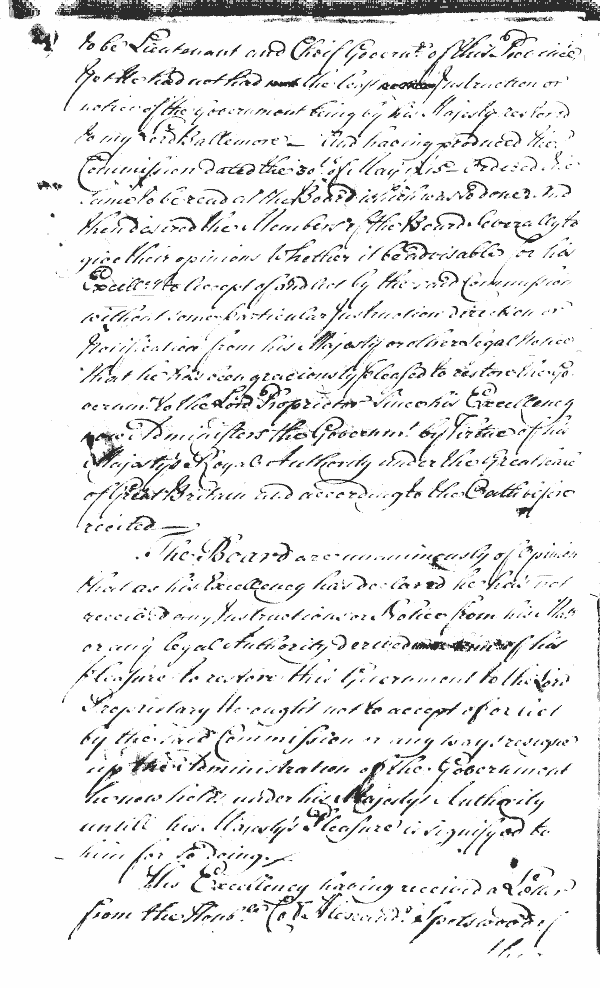 to be Lieutenant and Chief Governr. of this Province
yet He had not had the least Instruction or
notice of the Government being by his Majesty restord
to my Lord Baltemore — And having produced the
Commission dated the 30th of May 1715 Ordered the
same to be read at the Board which was so done And
then desired the Members of the Board Severally to
give their opinions Whether it be advisable for his
Excellcy to Accept of and Act by the said Commission
without some particular Instruction direction or
Notification from his Majesty or other Legal Notice
that he has been graciously pleased to restore the Go
vernmt. to the Lord Proprietor Since his Excellency
now Administers the Governmt. by Virtue of his
Majesty's Royal Authority under the Great Seale
of Great Britain and according to the Oath before
recited —
The Board are unanimously of Opinion
that as his Excellency has declared he has not
received any Instructions or Notice from his Maty
or any legal Authority derived of his
Pleasure to restore this Government to the Lord
Proprietary He ought not to accept of or act
by the said Commission or any ways resigne
up the Administration of the Government
he now holds under his Majesty's Authority
untill his Majesty's Pleasure is signifyed to
him for so doing.
His Excellency having received a Letter
from the Honble. Col. Alexandr. Spotswood of